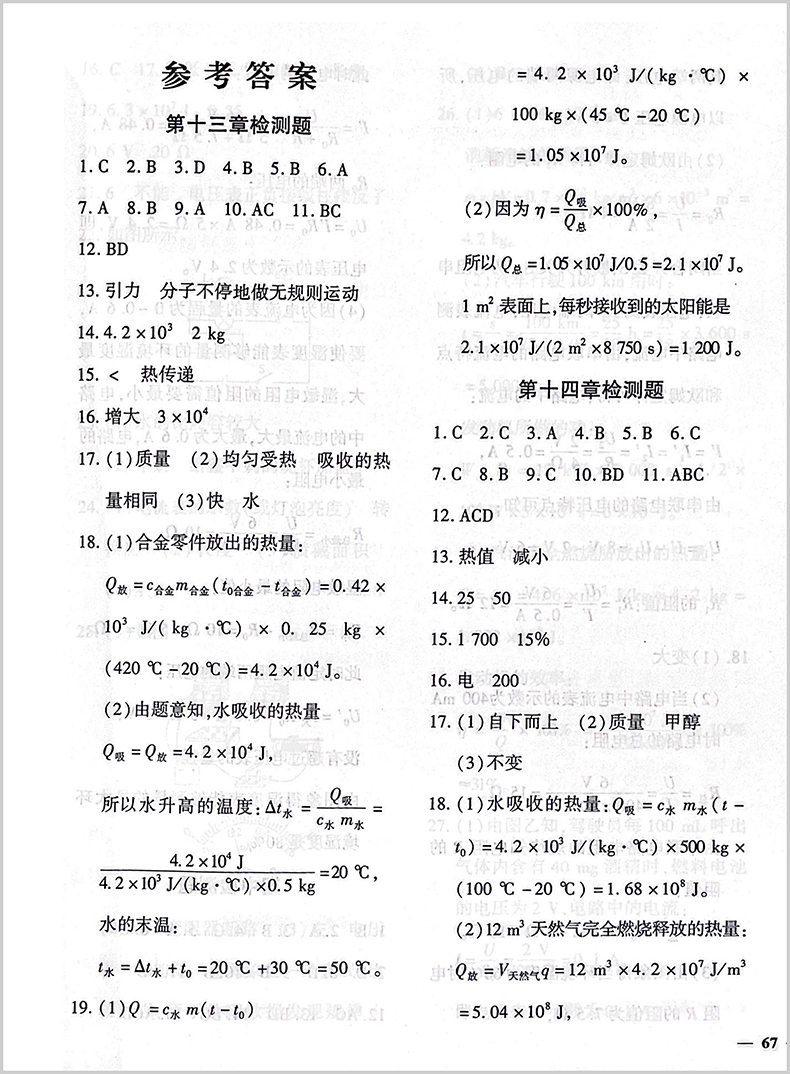 参考答案
第十三章检测题
1. C 2. B 3. D 4. B 5. B 6. A
7. A 8. B 9. A 10. AC 11. BC
12. BD
13. 引力 分子不停地做无规则运动
14. 4.2×10³ 2 kg
15. < 热传递
16. 增大 3×10⁴
17. (1)质量 (2)均匀受热 吸收的热
量相同 (3)快 水
18. (1)合金零件放出的热量:
Q放=c合金m合金(t0合金-t合金)=0.42×
10³ J/(kg·℃)×0.25 kg×
(420 ℃-20 ℃)=4.2×10⁴ J。
(2)由题意知,水吸收的热量
Q吸=Q放=4.2×10⁴ J,
所以水升高的温度:Δt水=Q吸/(c水 m水)=
4.2×10⁴ J/(4.2×10³ J/(kg·℃)×0.5 kg)=20 ℃,
水的末温:
t水=Δt水+t0=20 ℃+30 ℃=50 ℃。
19. (1)Q=c水 m(t-t0)
=4.2×10³ J/(kg·℃)×
100 kg×(45 ℃-20 ℃)
=1.05×10⁷ J。
(2)因为 η=Q吸/Q总×100%,
所以 Q总=1.05×10⁷ J/0.5=2.1×10⁷ J。
1 m² 表面上,每秒接收到的太阳能是
2.1×10⁷ J/(2 m²×8 750 s)=1 200 J。
第十四章检测题
1. C 2. C 3. A 4. B 5. B 6. C
7. C 8. B 9. C 10. BD 11. ABC
12. ACD
13. 热值 减小
14. 25 50
15. 1 700 15%
16. 电 200
17. (1)自下而上 (2)质量 甲醇
(3)不变
18. (1)水吸收的热量:Q吸=c水 m水(t-
t0)=4.2×10³ J/(kg·℃)×500 kg×
(100 ℃-20 ℃)=1.68×10⁸ J。
(2)12 m³ 天然气完全燃烧释放的热量:
Q放=V天然气q=12 m³×4.2×10⁷ J/m³
=5.04×10⁸ J,
— 67